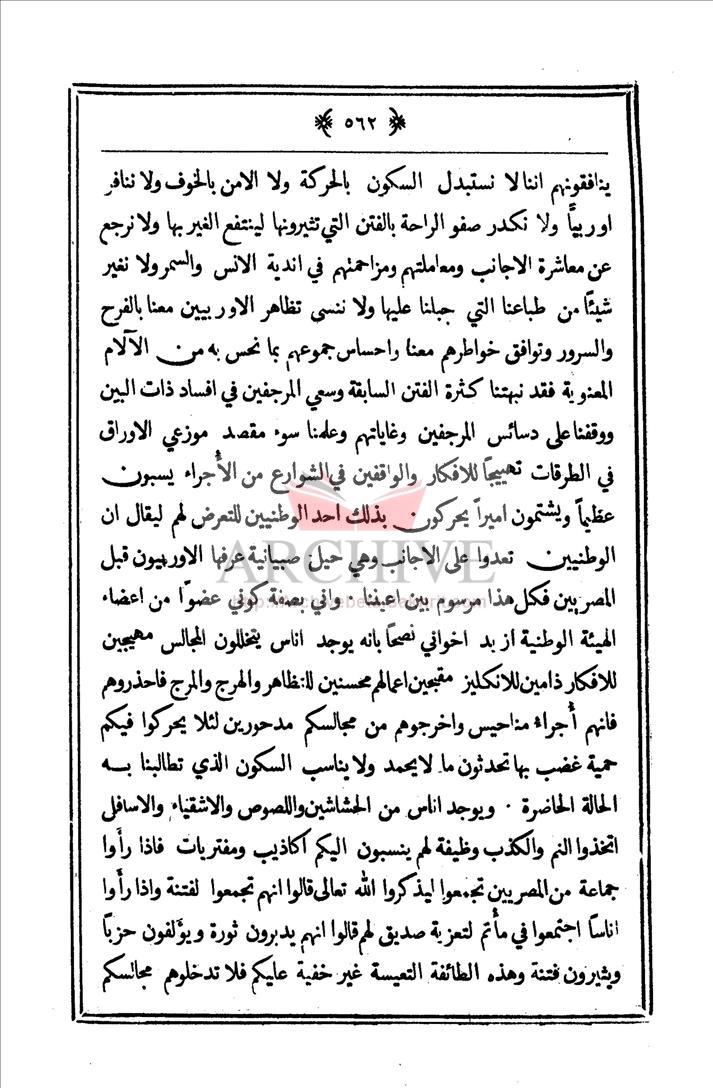 ٥٦٢
ينافقونهم اننا لا نستبدل السكون بالحركة ولا الامن بالخوف ولا ننافر
اوربيًّا ولا نكدر صفو الراحة بالفتن التي تثيرونها لينتفع الغير بها ولا نرجع
عن معاشرة الاجانب ومعاملتهم ومزاحمتهم في اندية الانس والسمر ولا نغير
شيئًا من طباعنا التي جبلنا عليها ولا ننسى تظاهر الاوربيين معنا بالفرح
والسرور وتوافق خواطرهم معنا واحساس جموعهم بما نحس به من الآلام
المعنوية فقد نبهتنا كثرة الفتن السابقة وسعي المرجفين في افساد ذات البين
ووقفنا على دسائس المرجفين وغاياتهم وعلمنا سوء مقصد موزعي الاوراق
في الطرقات تهييجًا للافكار والواقفين في الشوارع من الأُجراء يسبون
عظيماً ويشتمون اميراً يحركون بذلك احد الوطنيين للتعرض لهم ليقال ان
الوطنيين تعدوا على الاجانب وهي حيل صبيانية عرفها الاوربيون قبل
المصريين فكل هذا مرسوم بين اعيننا ٠ واني بصفة كوني عضوًا من اعضاء
الهيئة الوطنية ازيد اخواني نصحًا بانه يوجد اناس يتخللون المجالس مهيجين
للافكار ذامين للانكليز مقبحين اعمالهم محسنين للتظاهر والهرج والمرج فاحذروهم
فانهم أُجراء مناحيس واخرجوهم من مجالسكم مدحورين لئلا يحركوا فيكم
حمية غضب بها تحدثون ما لا يحمد ولا يناسب السكون الذي تطالبنا به
الحالة الحاضرة ٠ ويوجد اناس من الحشاشين واللصوص والاشقياء والاسافل
اتخذوا النم والكذب وظيفة لهم ينسبون اليكم اكاذيب ومفتريات فاذا رأوا
جماعة من المصريين تجمعوا ليذكروا الله تعالى قالوا انهم تجمعوا لفتنة واذا رأوا
اناسًا اجتمعوا في مأتم لتعزية صديق لهم قالوا انهم يدبرون ثورة ويؤلفون حزبًا
ويثيرون فتنة وهذه الطائفة التعيسة غير خفية عليكم فلا تدخلوهم مجالسكم
ARCHIVE